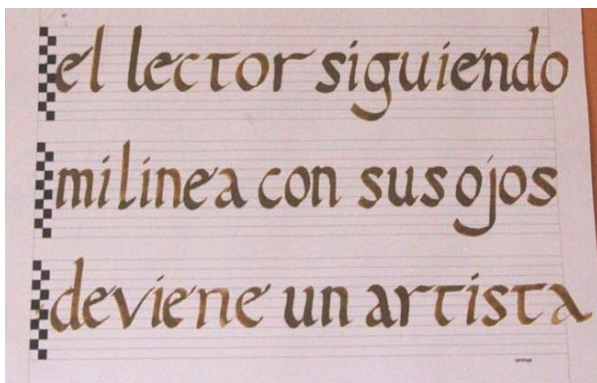 el lector siguiendo
mi linea con sus ojos
deviene un artista